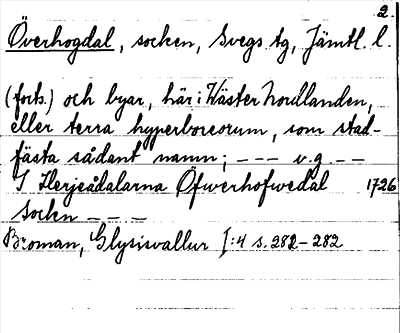 2.
Överhogdal, socken, Svegs tg, Jämtl. l.
(forts.) och byar, här i Wäster Nordlanden,
eller terra hyperboreorum, som stad-
fästa sådant namn; --- v.g. --
I Herjeådalarna Öfwerhofwedal 1726
Socken ---
Broman, Glysisvallur I:4 s. 282-282